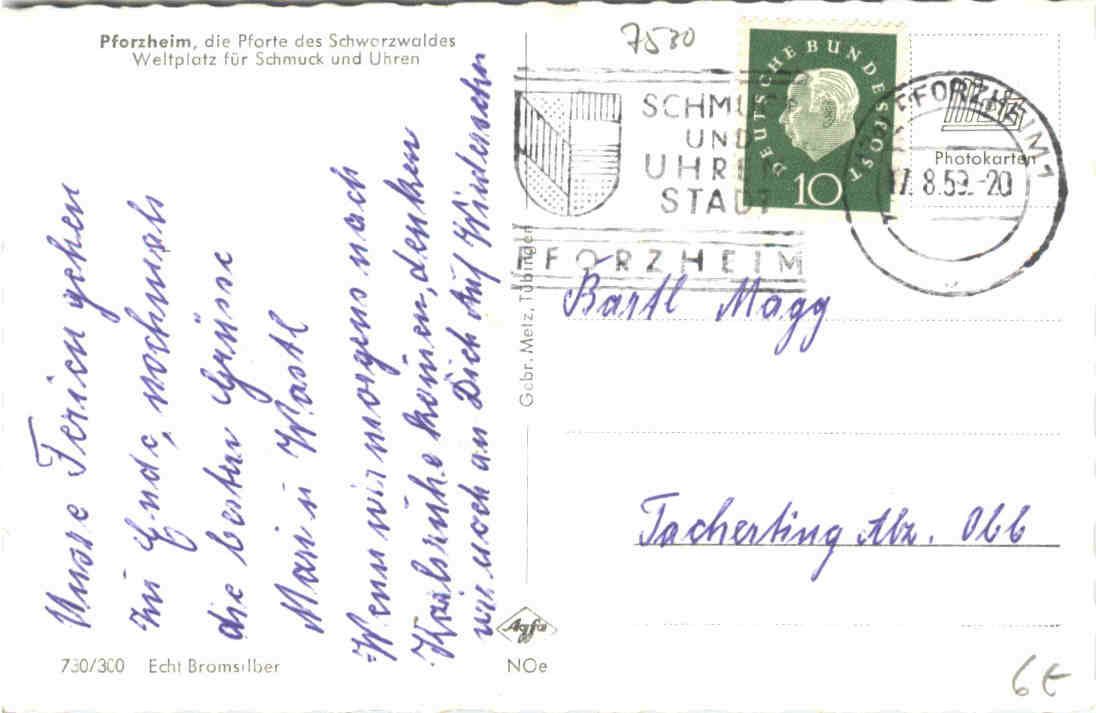 Pforzheim, die Pforte des Schwarzwaldes
Weltplatz für Schmuck und Uhren
7530
SCHMUCK
UND
UHREN
STADT
PFORZHEIM
DEUTSCHE BUNDESPOST
10
PFORZHEIM 1
17.8.59.-20
METZ
Photokarten
Unsre Ferien gehen
zu Ende, nochmals
die besten Grüsse
Mari u Wastl
Wenn wir morgens nach
Karlsruhe kommen, denken
wir noch an Dich Auf Wiedersehn
Gebr. Metz, Tübingen
Bartl Magg
Tacherting Abz. Obb
Agfa
730/300 Echt Bromsilber
NOe
6€